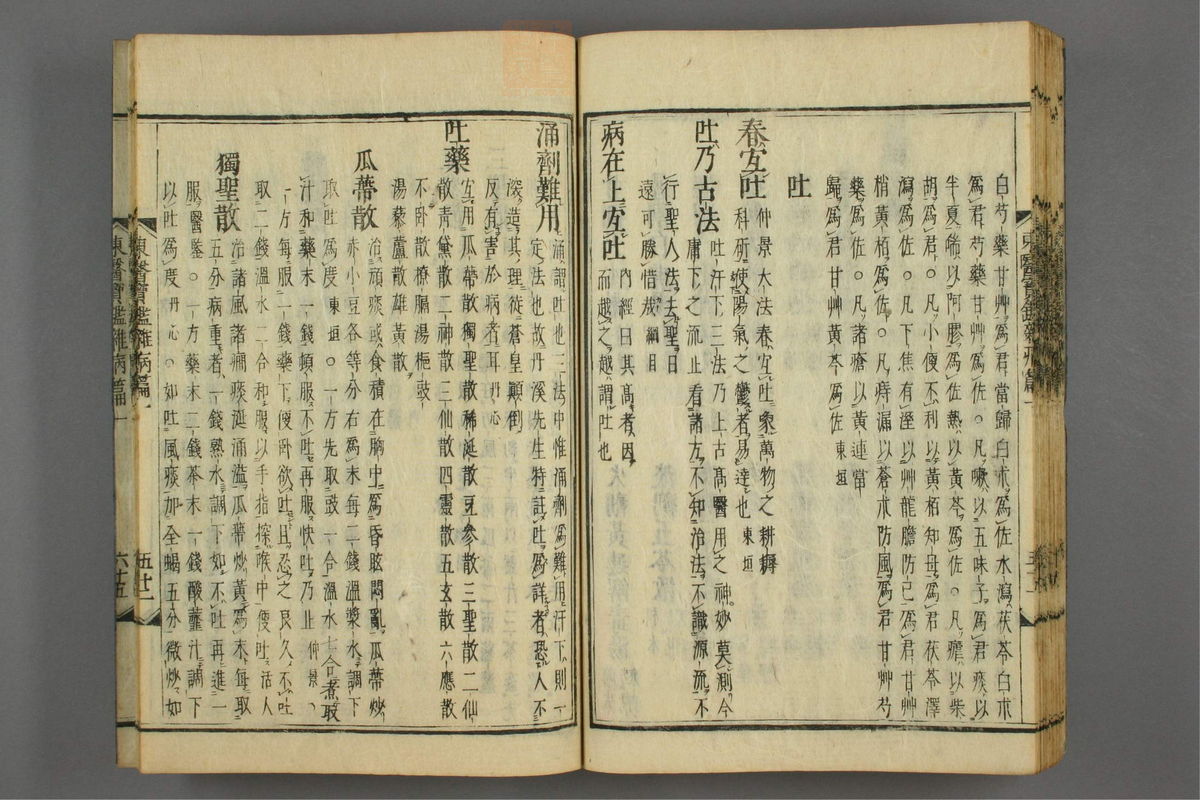 白芍藥甘艸爲君當歸白朮爲佐水瀉茯苓白朮
爲君芍藥甘艸爲佐○凡嗽以五味子爲君痰以
半夏喘以阿膠爲佐熱以黃芩爲佐○凡瘧以柴
胡爲君○凡小便不利以黃栢知母爲君茯苓澤
瀉爲佐○凡下焦有湿以艸龍膽防已爲君甘艸
梢黃栢爲佐○凡痔漏以蒼朮防風爲君甘艸芍
藥爲佐○凡諸瘡以黃連當
歸爲君甘艸黃芩爲佐東垣
吐
春宜吐仲景大法春宜吐象萬物之耕耨
科斫使陽氣之鬱者易達也東垣
吐乃古法吐汗下三法乃上古髙醫用之神妙莫測今
庸下之流止看諸方不知治法不識源流不
行聖人法去聖日
遠可勝惜哉綱目
病在上宜吐內經曰其髙者因
而越之越謂吐也
涌劑難用涌謂吐也三法中惟涌劑爲難用汗下則
定法也故丹溪先生特註吐爲詳者恐人不
深造其理徒蒼皇顚倒
反有害於病者耳丹心
吐藥宜用瓜蒂散獨聖散稀涎散豆參散三聖散二仙
散靑黛散二神散三仙散四靈散五玄散六應散
不卧散撩膈湯梔豉
湯藜蘆散雄黃散
瓜蒂散治頑痰或食積在胷中爲昏眩悶亂瓜蒂炒
赤小豆各等分右爲末每二錢溫漿水調下
取吐爲度東垣○一方先取豉一合溫水七合煮取
汁和藥末一錢頓服不吐再服快吐乃止仲景○
一方每服一錢藥下便卧欲吐且忍之良久不吐
取二錢溫水二合和服以手指探喉中便吐活人
獨聖散治諸風諸癎痰涎涌溢瓜蒂炒黃爲末每取
五分病重者一錢熟水調下如不吐再進一
服醫鑒○一方藥末二錢茶末一錢酸虀汁調下
以吐爲度丹心○如吐風痰加全蝎五分微炒如
東醫寶鑑雜病篇一
五廿二
東醫寶鑑雜病篇一
六廿五